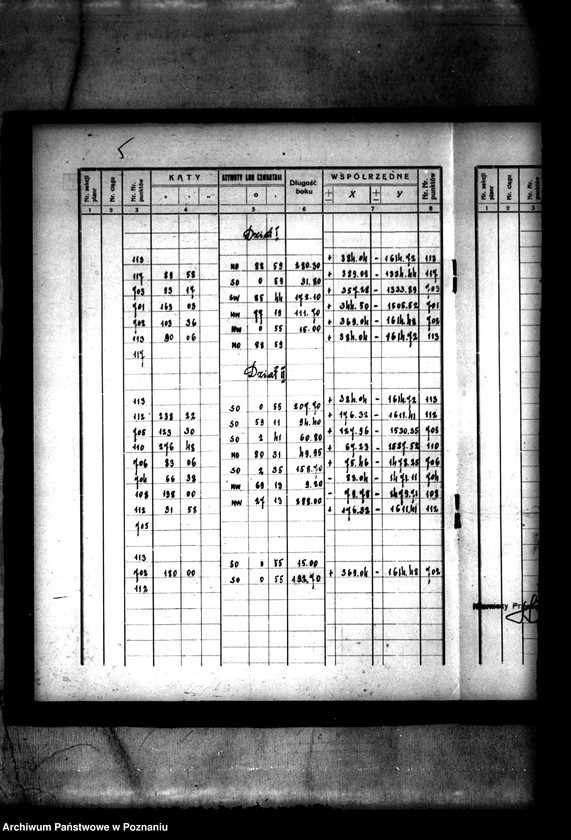 5
Nr. sekcji planu Nr. ciągu Nr. Nr. punktów KĄTY AZYMUTY LUB CZWARTAKI Długość boku WSPÓŁRZĘDNE Nr. Nr. punktów Nr. sekcji planu Nr. ciągu Nr. Nr. punktów
° ' " ° ' + − X + − Y
1 2 3 4 5 6 7 8 1 2 3
Dział I
113 + 384.04 − 1614.72 113
NO 88 59 280.30
117 89 58 + 389.08 − 1334.44 117
SO 0 59 31.80
703 93 17 + 357.28 − 1333.89 703
SW 85 44 172.10
701 163 03 + 344.50 − 1505.52 701
NW 77 19 111.70
702 103 36 + 369.04 − 1614.48 702
NW 0 55 15.00
113 90 06 + 384.04 − 1614.72 113
NO 88 59
117
Dział II
113 + 384.04 − 1614.72 113
SO 0 55 207.70
112 238 22 + 176.32 − 1611.41 112
SO 59 11 94.40
705 123 30 + 127.96 − 1530.35 705
SO 2 41 60.80
110 276 48 + 67.23 − 1527.52 110
NO 80 31 49.95
706 83 06 + 75.46 − 1478.25 706
SO 2 35 158.70
704 66 38 − 83.04 − 1471.11 704
NW 69 13 9.20
108 138 00 − 79.78 − 1479.71 108
NW 27 13 288.00
112 31 53 + 176.32 − 1611.41 112
705
113
SO 0 55 15.00
702 180 00 + 369.04 − 1614.48 702
SO 0 55 192.70
112
Mierniczy
Archiwum Państwowe w Poznaniu